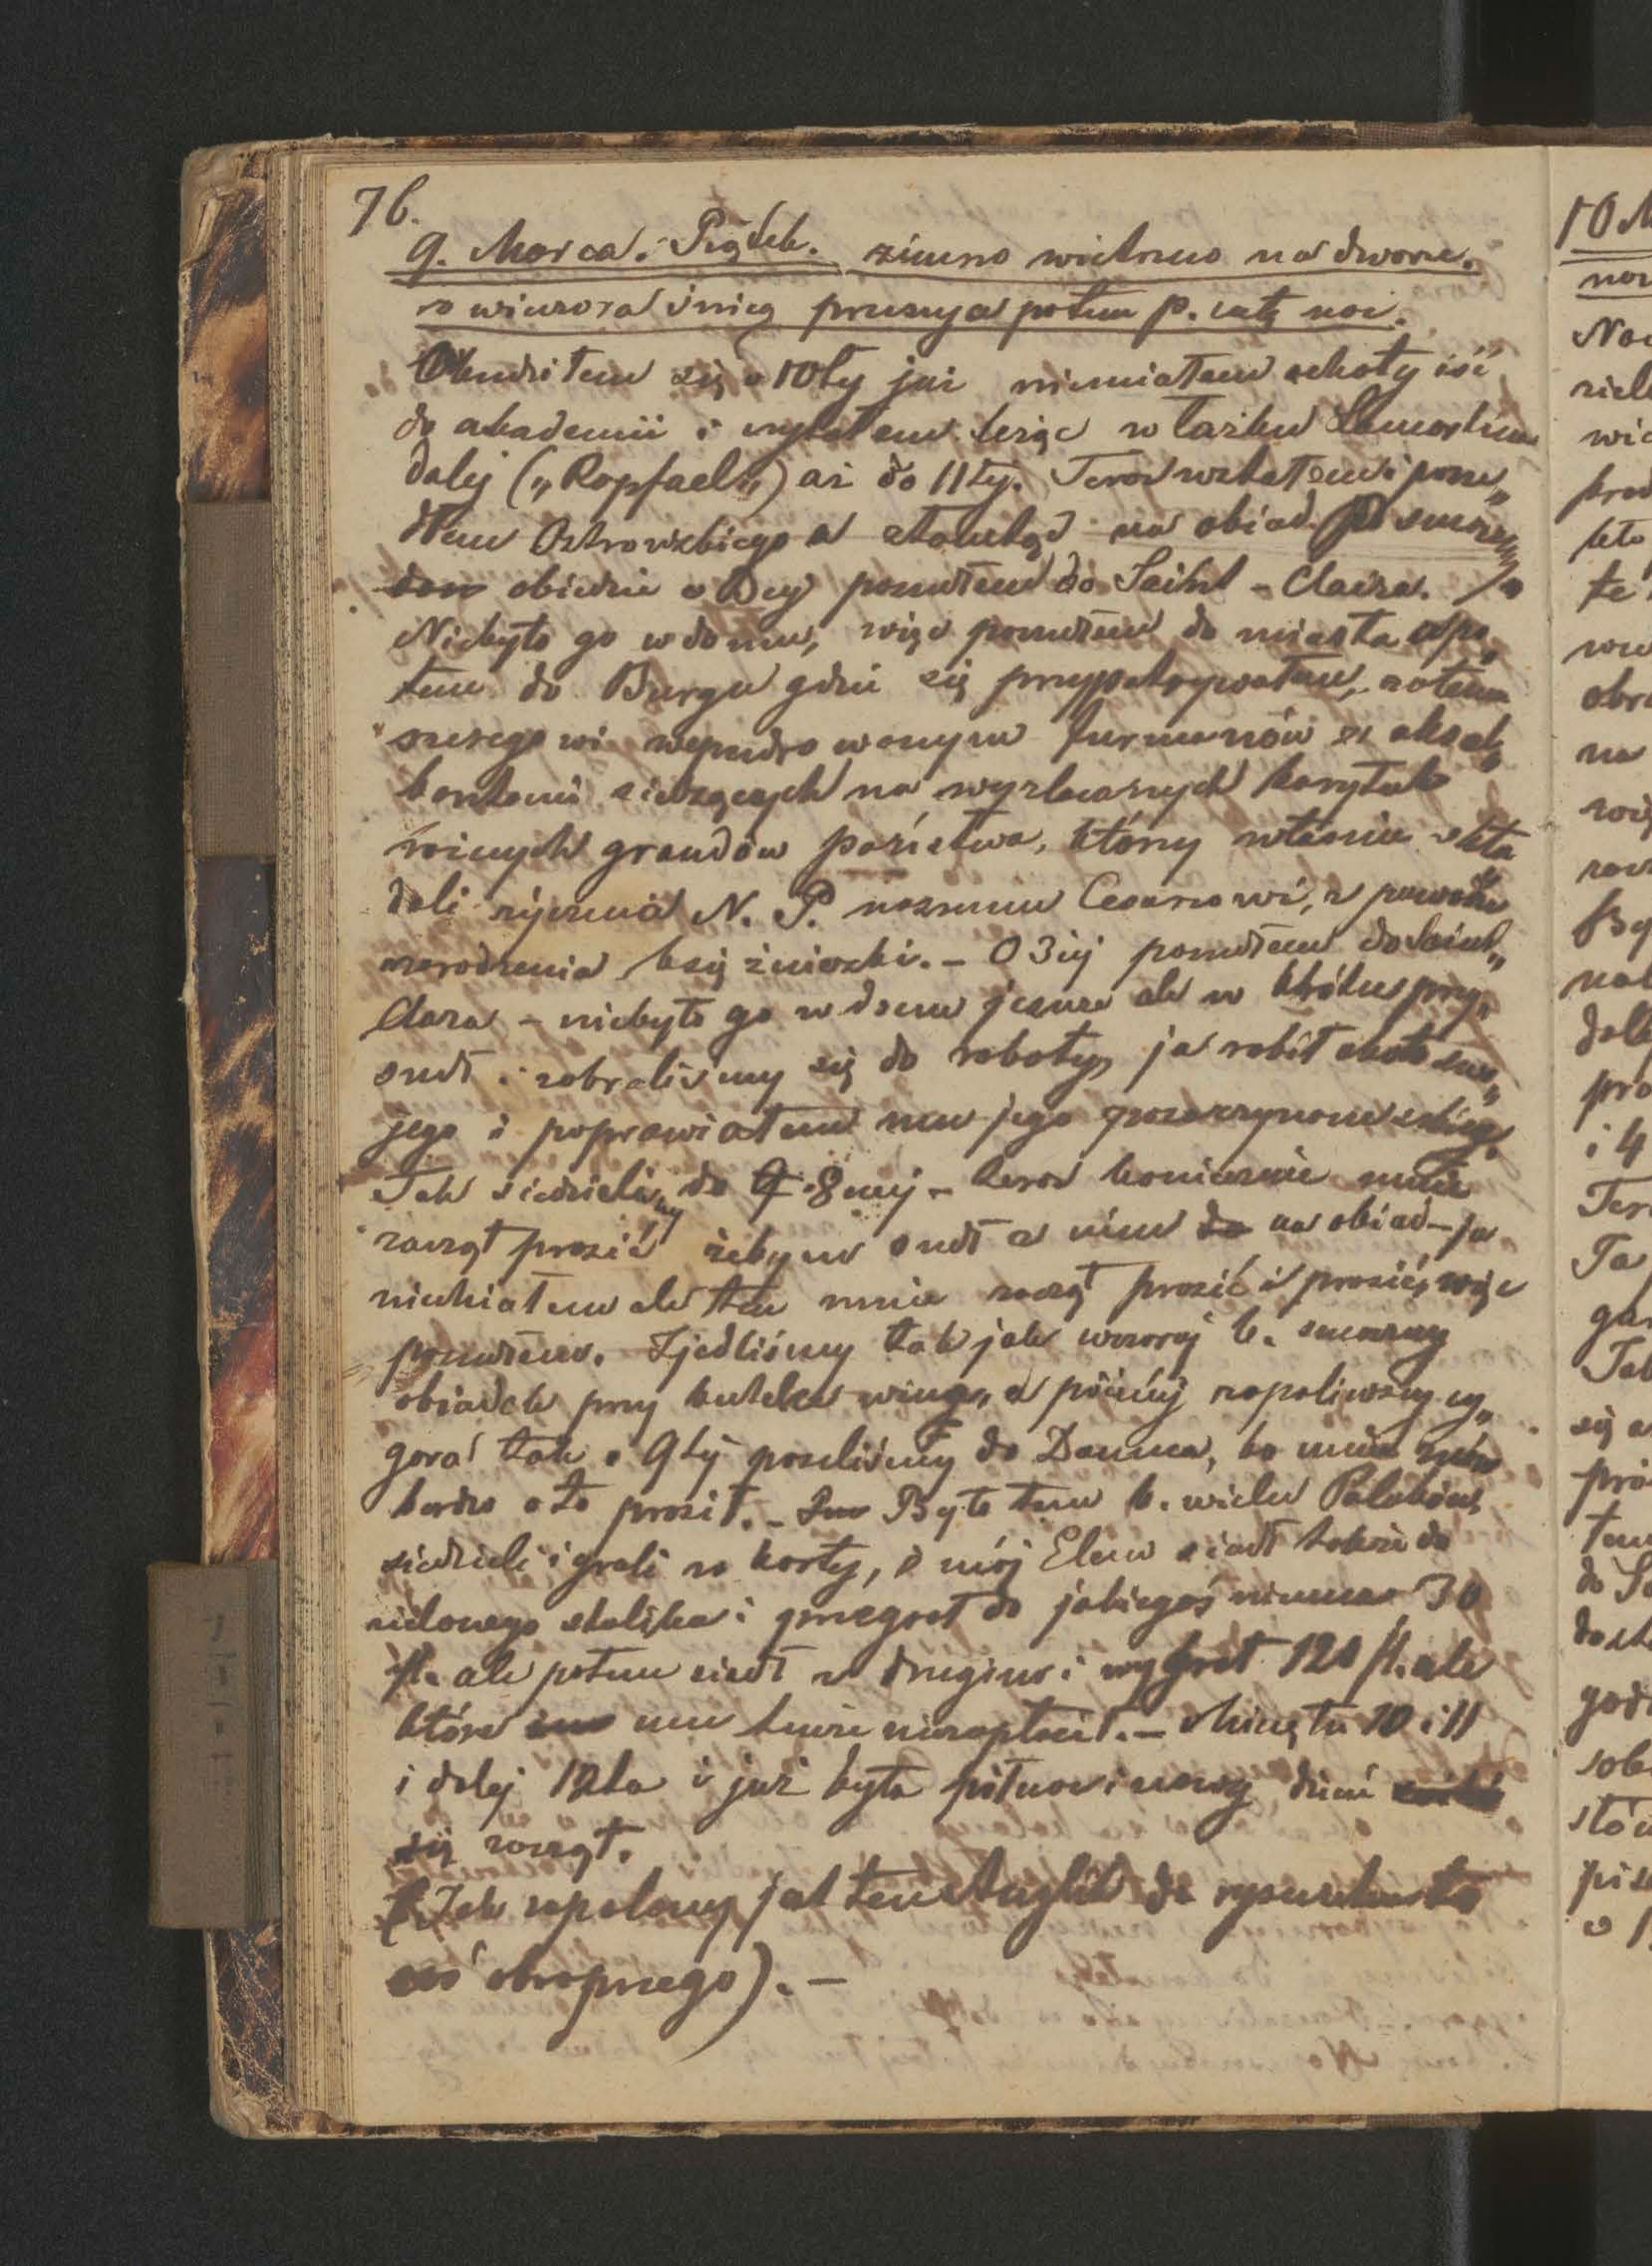 76.
9. Marca. Piątek. zimno wietrzno na dworze.
z wieczora śnieg pruszył a potem p. całą noc.
Obudziłem się o 10ty już niemiałem ochoty iść
do akademii i czytałem leżąc w łóżku Lamartina
dalej („Rapfael„) aż do 11ty. Teraz wstałem i posze„
dłem Ostrowskiego a stamtąd na obiad. Po smacz„
obiedzie o 2ej poszedłem do Saint-Claira.
Niebyło go w domu, więc poszedłem do miasta a po„
tem do Burgu gdzie się przypatrywałem,
szeregowi wypudrowanym furmanów z aksel„
bantami siedzących na wyzłacanych karytach
różnych grandów państwa, którzy właśnie skła
dali życzenia N. P. naszemu Cesarzowi, z powodu
narodzenia księżniczki. – O 3iej poszedłem do Saint„
Clara – niebyło go w domu jeszcze ale w krótce przy„
szedł i zabraliśmy się do roboty, ja robił około swo„
jego i poprawiałem mu jego
Tak siedzieliśmy do 8mej – teraz koniecznie mnie
zaczął prosić żebym szedł z nim na obiad – ja
niechiałem ale ten mnie zaczął prosić i prosić, więc
poszedłem. Zjedliśmy tak jak wczoraj b. smaczny
obiadek przy butelce wina, a później zapaliwszy cy„
gara tak o 9tej poszliśmy do Dauma, bo mnie znów
bardzo o to prosił. – Było tam b. wielu Polaków,
siedzieli i grali w karty, i mój Elew siadł także do
zielonego stolika i przegrał do jakiegoś niemca 30
fl. ale potem siadł z drugim i wygrał 120 fl. ale
które mu tenże niezapłacił. – Minęła 10 i 11
i dalej 12ta i już była północ i nowy dzień
się zaczął.
(Tak zapalony jak ten Anglik do rysunku to
coś okropnego). –